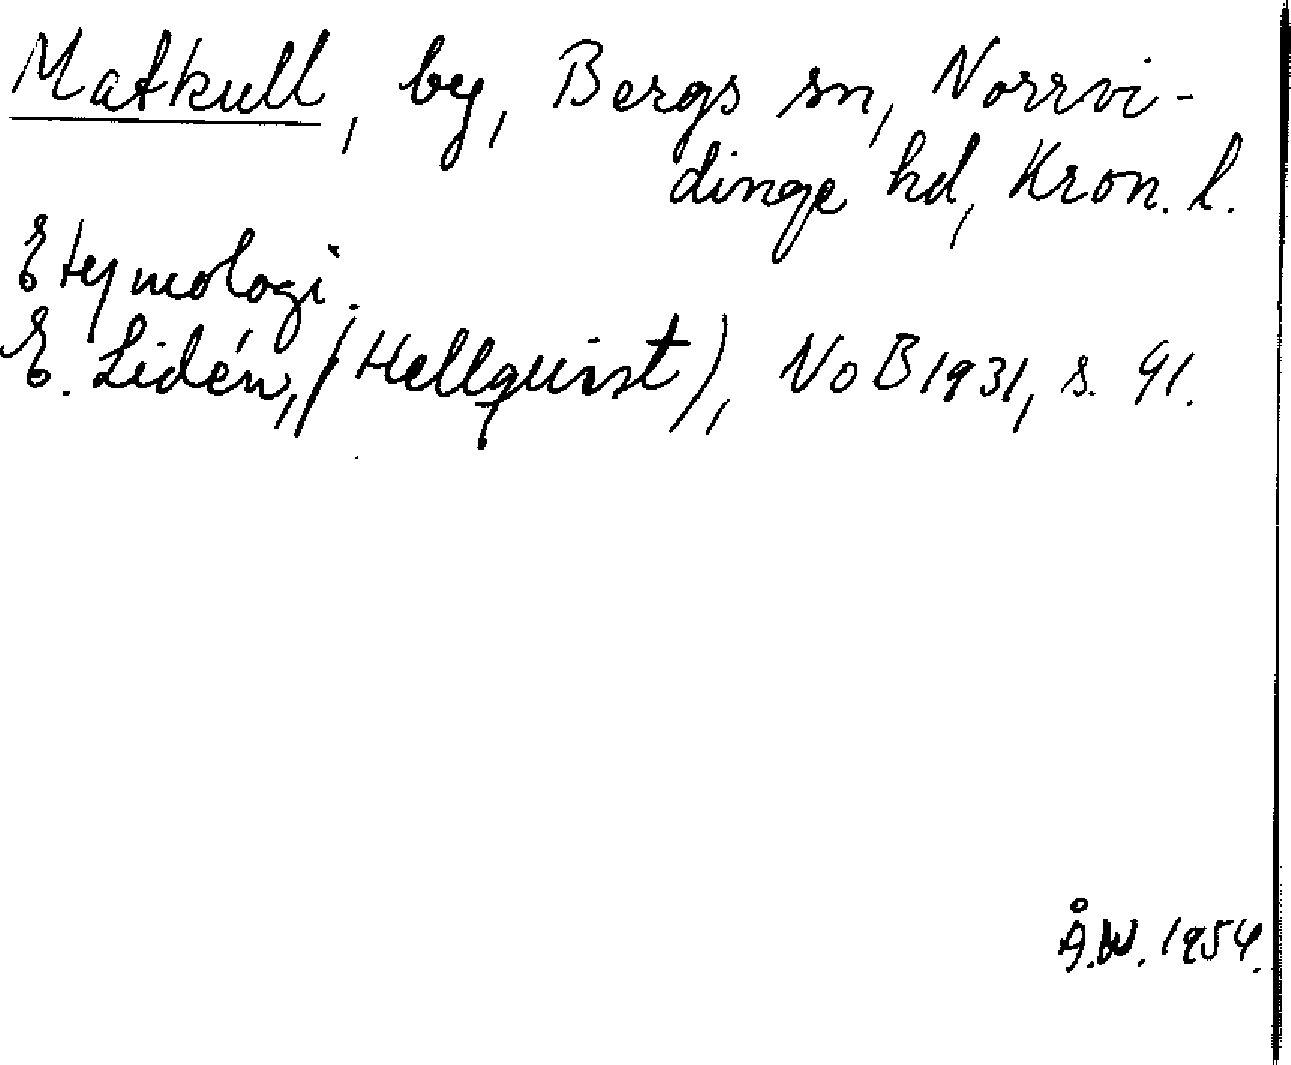 Matkull, by, Bergs sn, Norrvi-
dinge hd, Kron. l.
Etymologi.
E. Lidén, (Hellquist), NoB 1931, s. 91.
Å.W. 1954.